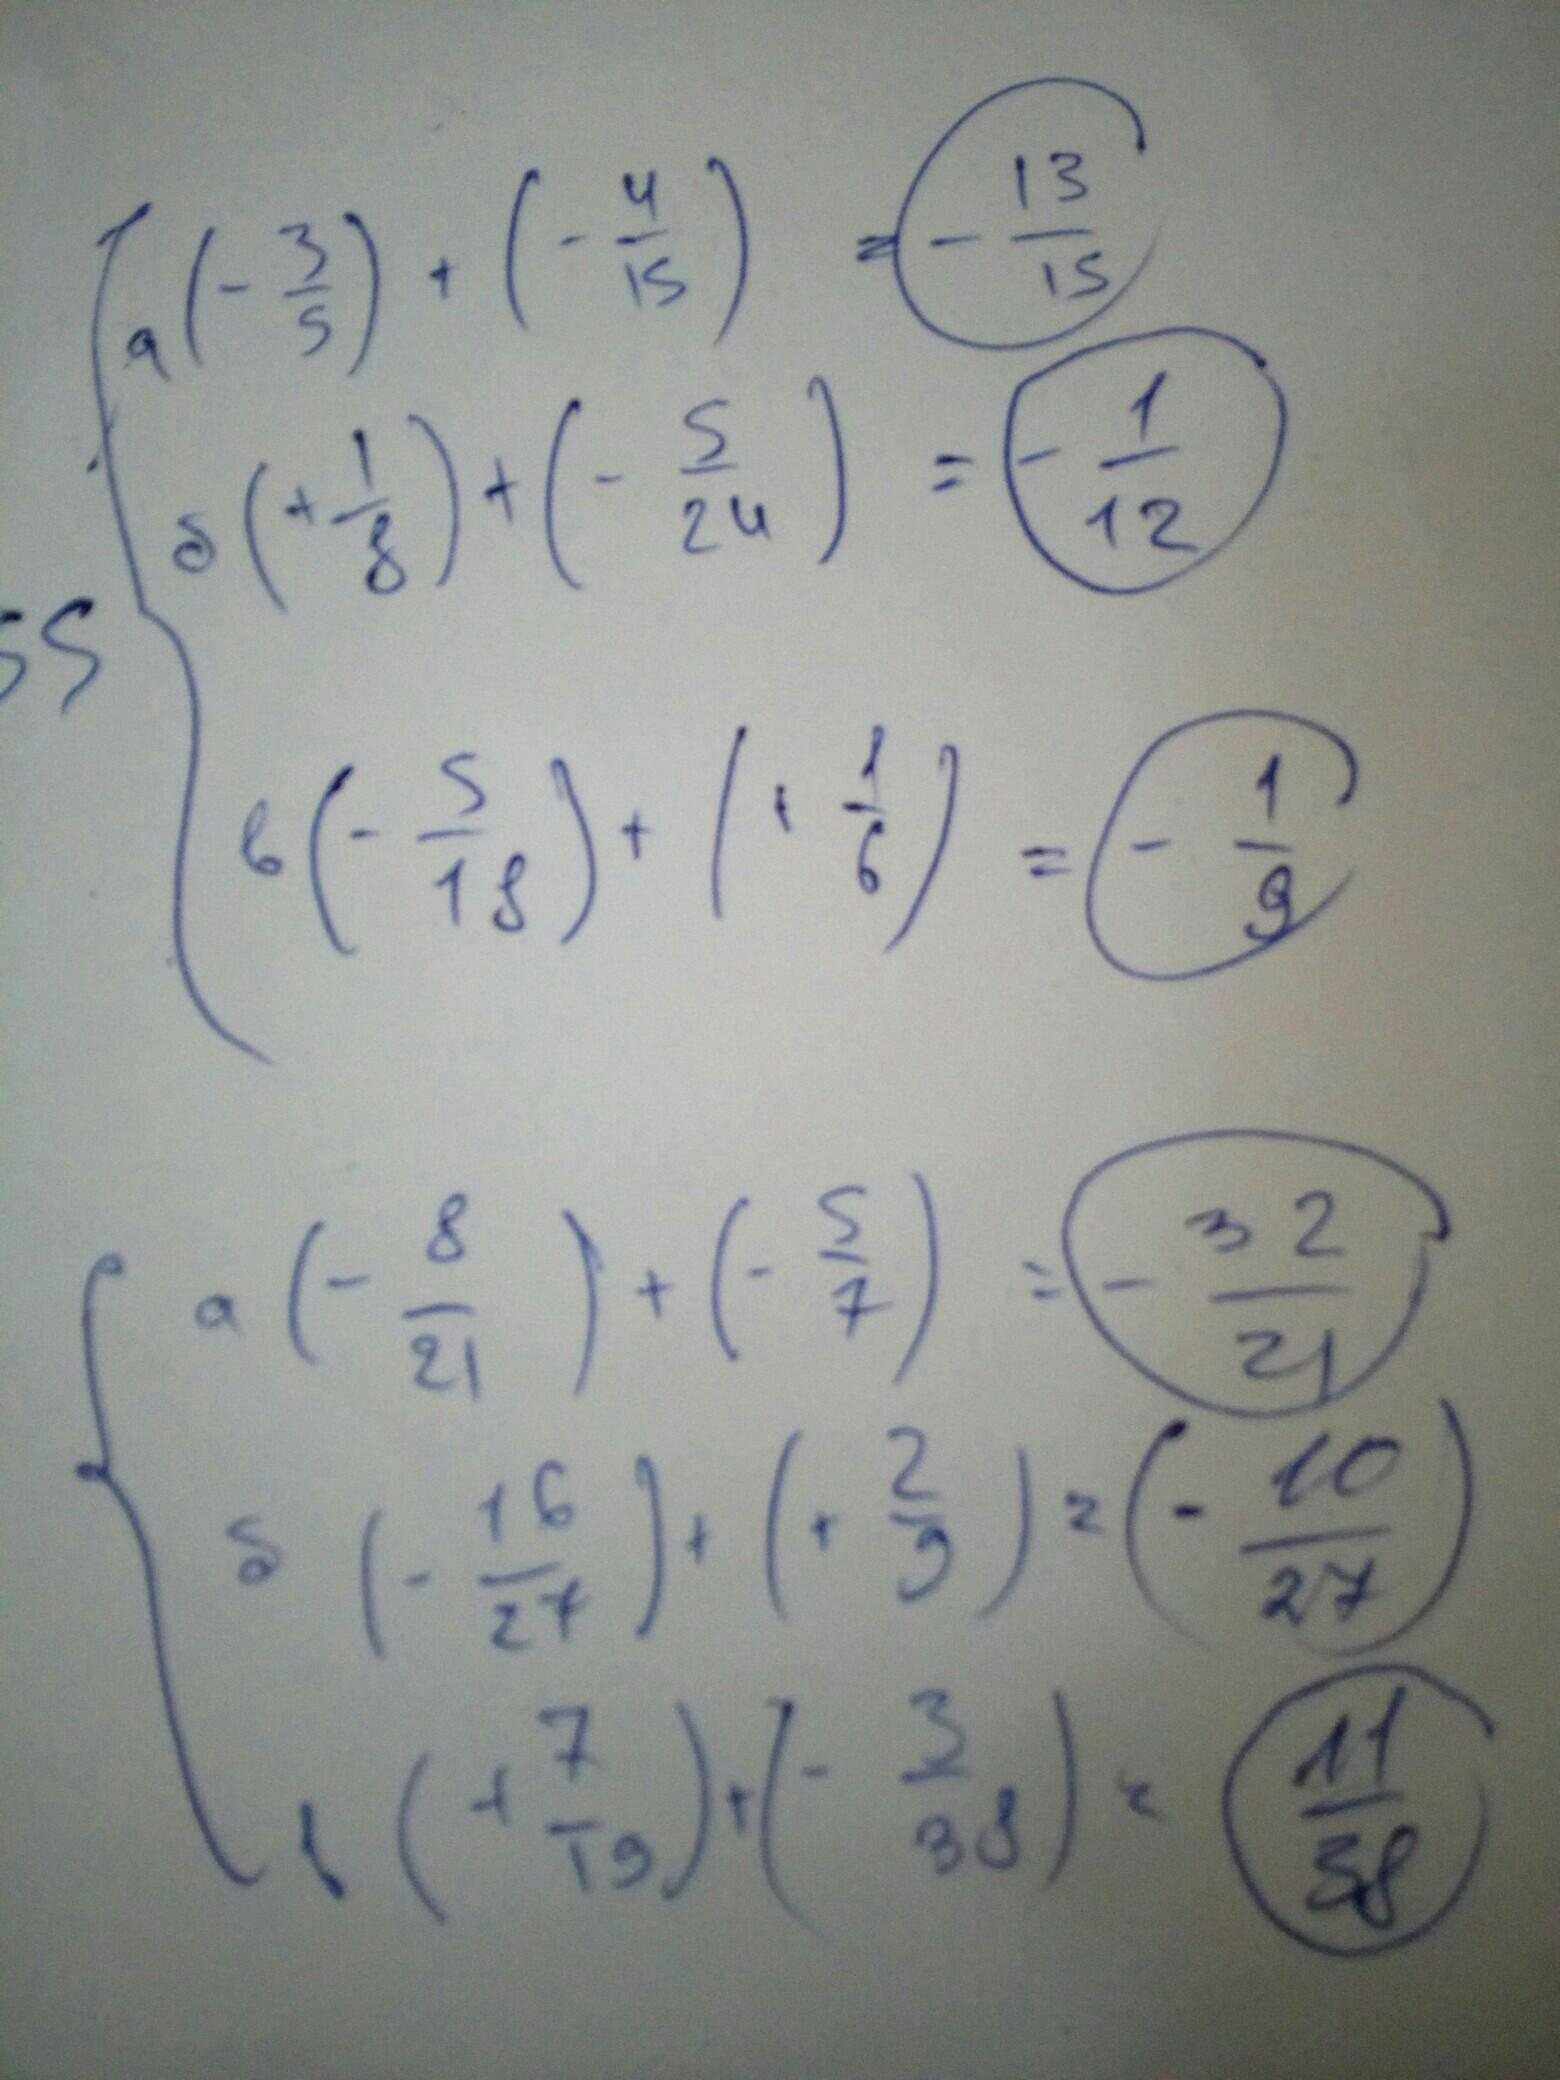 а (- 3/5) + (- 4/15) = - 13/15
б (+ 1/8) + (- 5/24) = - 1/12
55
в (- 5/18) + (+ 1/6) = - 1/9
а (- 8/21) + (- 5/7) = - 32/21
б (- 16/27) + (+ 2/9) = (- 10/27)
в (+ 7/19) + (- 3/38) = 11/38